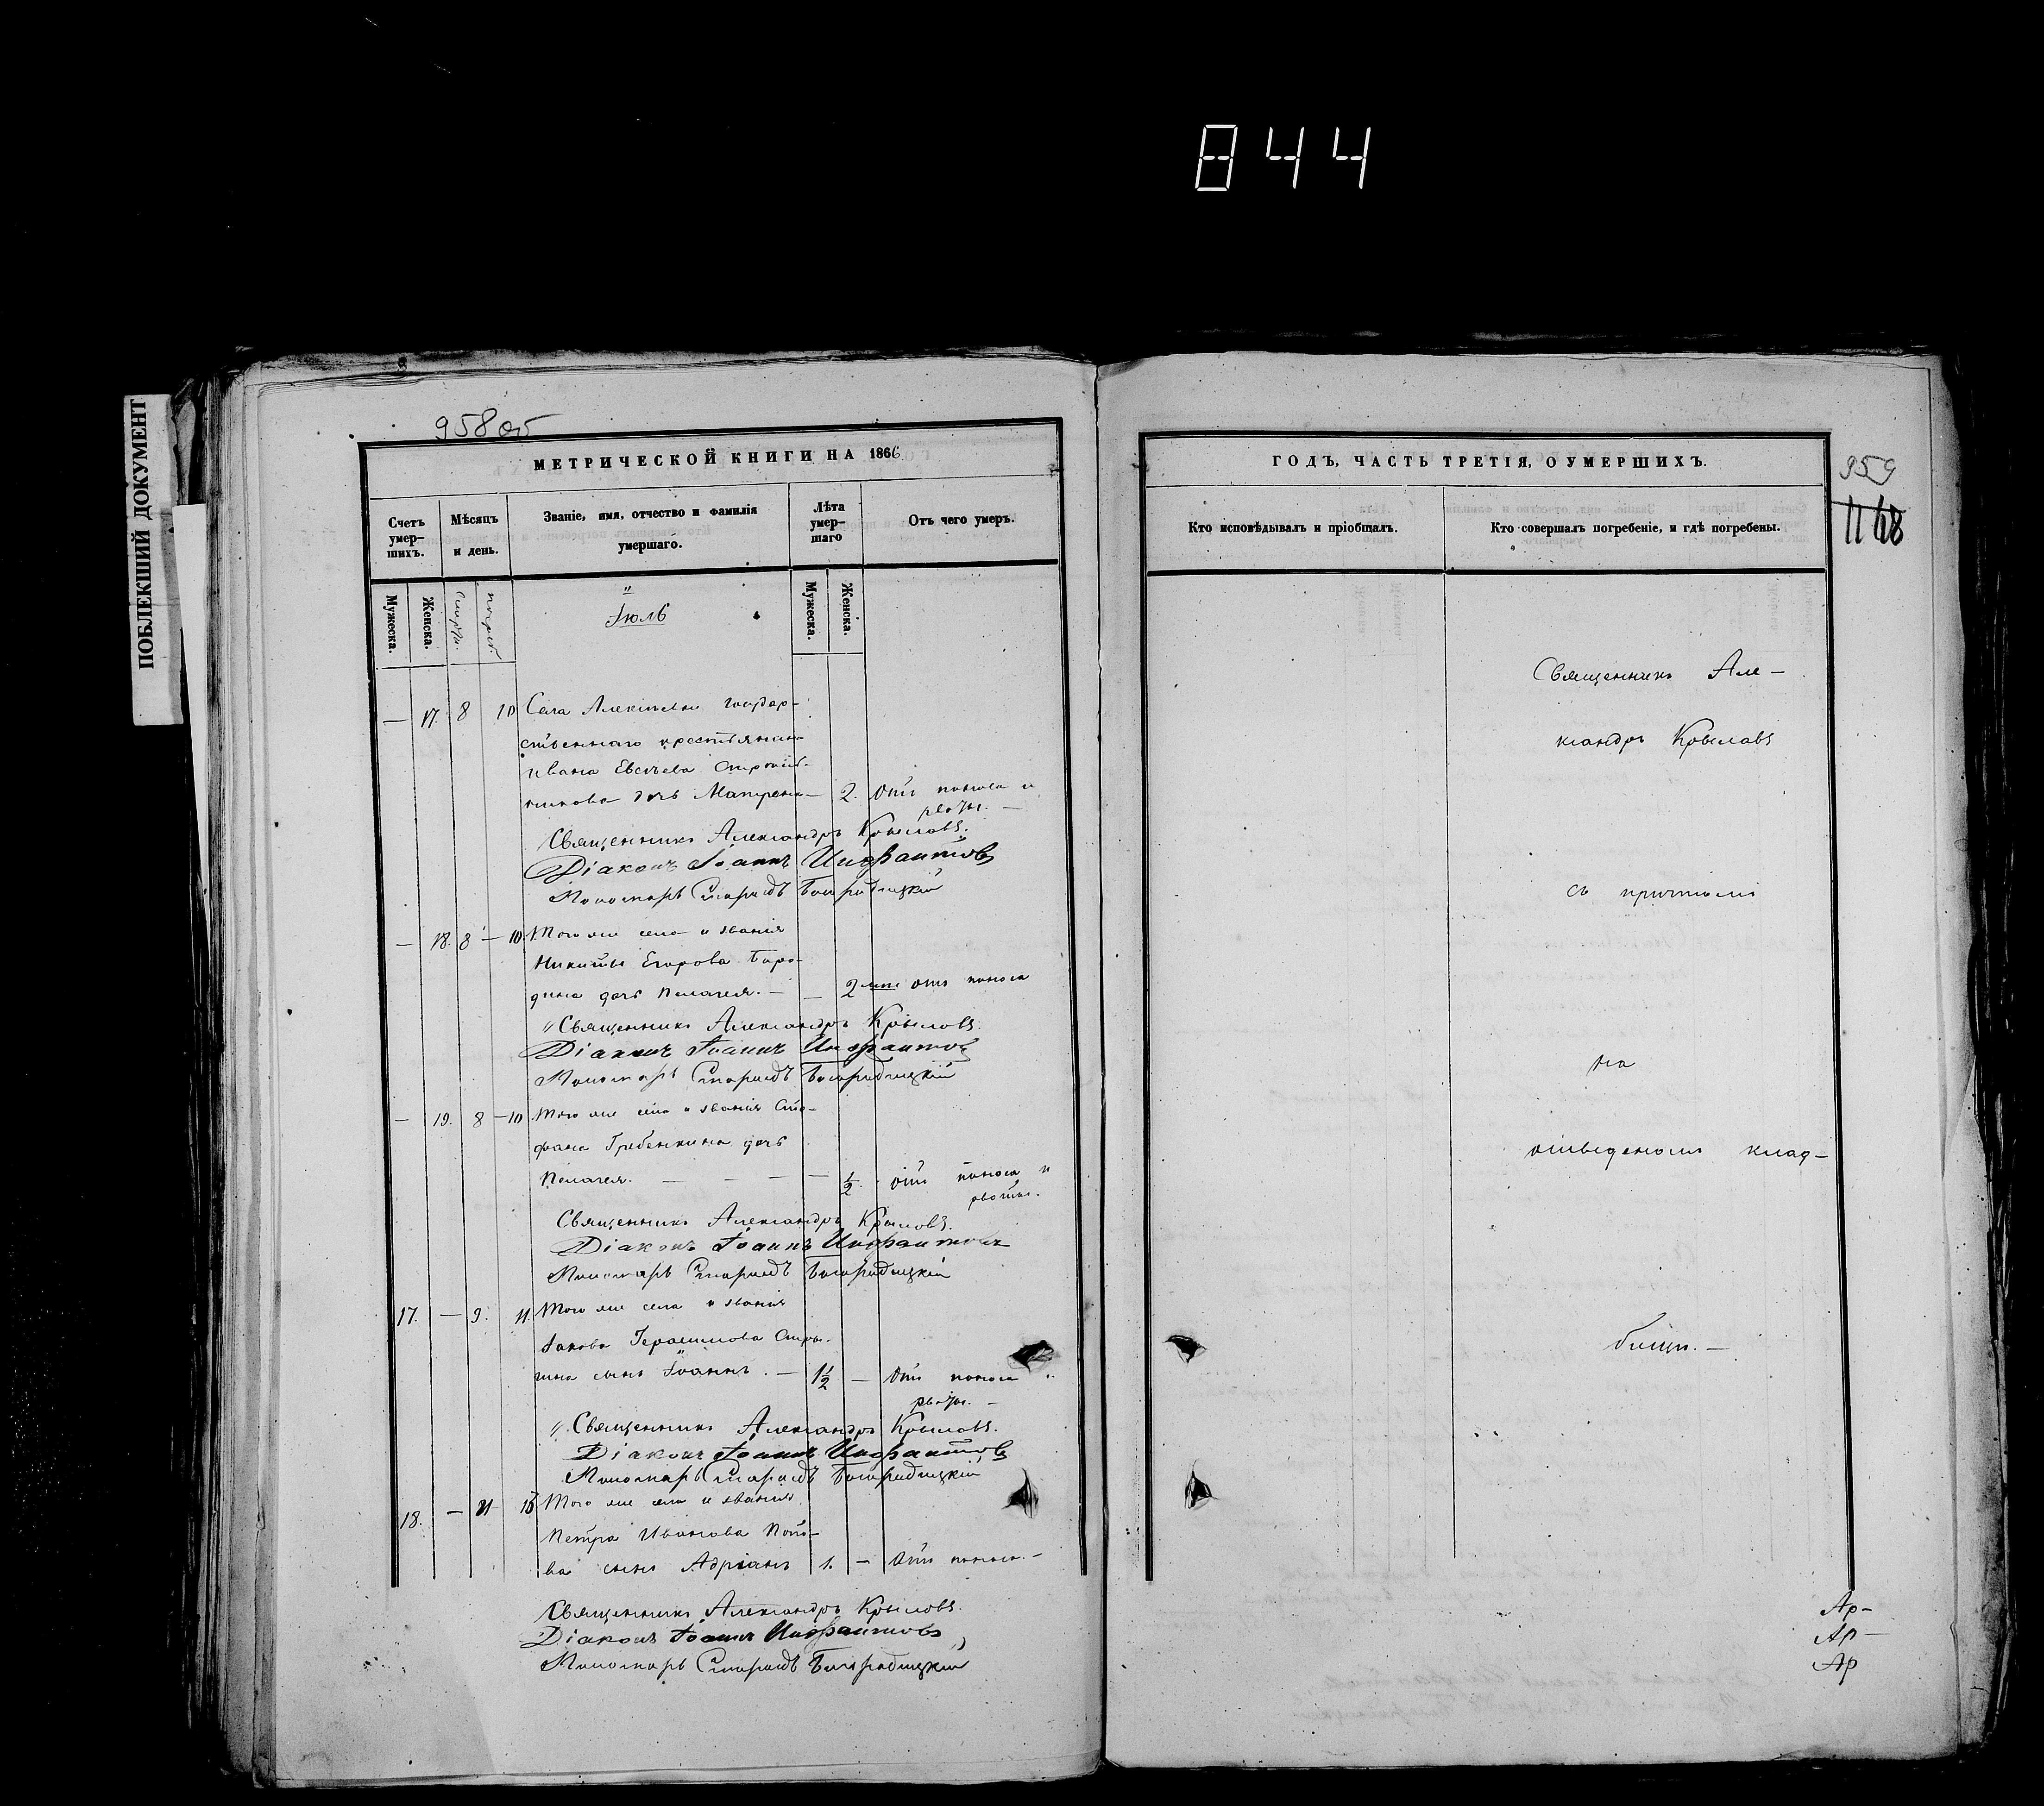 844
ПОБЛЕКШИЙ ДОКУМЕНТ
958 об
МЕТРИЧЕСКОЙ КНИГИ НА 1866
Счетъ умер-
шихъ.
Мѣсяцъ
и день.
Званіе, имя, отчество и фамилія
умершаго.
Лѣта
умер-
шаго
Отъ чего умеръ.
Мужеска.
Женска.
Мужеска.
Женска.
Іюль
— 17. 8 10 Села государ-
ственнаго крестьянина
Ивана Евсѣева
дочь Матрена — 2. Отъ поноса и
рвоты. —
Священникъ Александръ Крыловъ.
Діаконъ Іоаннъ
Пономарь Богородицкій
— 18. 8 — 10. Того же села и званія
Никиты Егорова Боро-
дина дочь Пелагея. — — 2 отъ поноса
Священникъ Александръ Крыловъ.
Діаконъ Іоаннъ
Пономарь Богородицкій
— 19. 8 — 10 Того же села и званія Сте-
фана Гребенкина дочь
Пелагея. — — — — 1/2. отъ поноса и
рвоты.
Священникъ Александръ Крыловъ.
Діаконъ Іоаннъ
Пономарь Богородицкій
17. — 9. 11. Того же села и званія
Іакова Герасимова
сынъ Іоаннъ. — 1 1/2 — Отъ поноса и
рвоты. —
Священникъ Александръ Крыловъ.
Діаконъ Іоаннъ
Пономарь Богородицкій
18. — 15 Того же села и званія
Петра Иванова Попо-
ва сынъ Адріанъ 1. — Отъ поноса. —
Священникъ Александръ Крыловъ.
Діаконъ Іоаннъ
Пономарь Богородицкій
ГОДЪ, ЧАСТЬ ТРЕТІЯ, О УМЕРШИХЪ.
959
1168
Кто исповѣдывалъ и пріобщалъ.
Кто совершалъ погребеніе, и гдѣ погребены.
Священникъ Але-
ксандръ Крыловъ
съ причтомъ
на
отведеномъ клад-
бищѣ. —
Ар-
Ар-
Ар